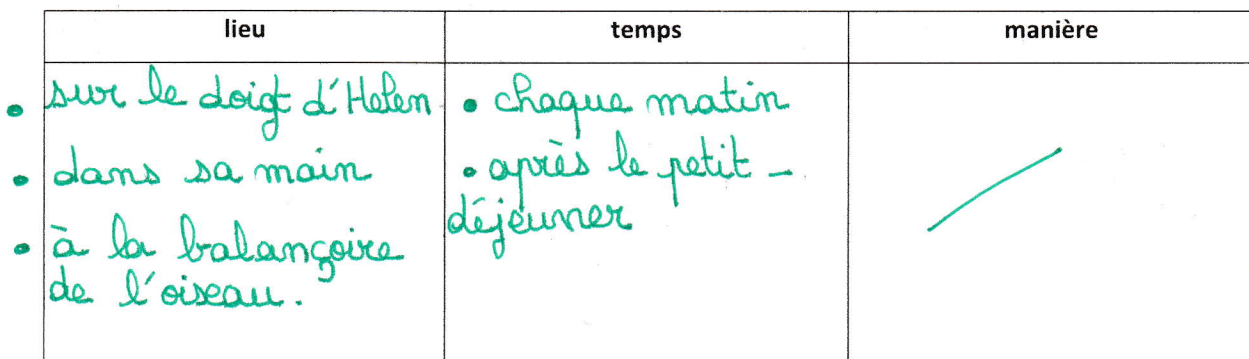 lieu temps manière
• sur le doigt d'Helen
• dans sa main
• à la balançoire
de l'oiseau.
• chaque matin
• après le petit -
déjeuner